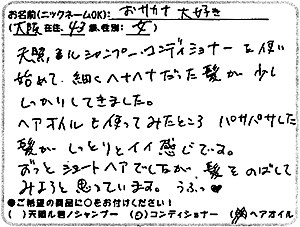 お名前(ニックネームOK): おサカナ大好き
(大阪 在住、43歳、性別: 女)
天照まルシャンプー・コンディショナーを使い
始めて、細くヘナヘナだった髪が少し
しっかりしてきました。
ヘアオイルも使ってみたところ パサパサした
髪がしっとりとイイ感じです。
ずっとショートヘアでしたが、髪をのばして
みようと思っています。うふっ♥
●ご希望の商品に○をお付けください!
( )天照ル君ノシャンプー (○)コンディショナー ( )ヘアオイル